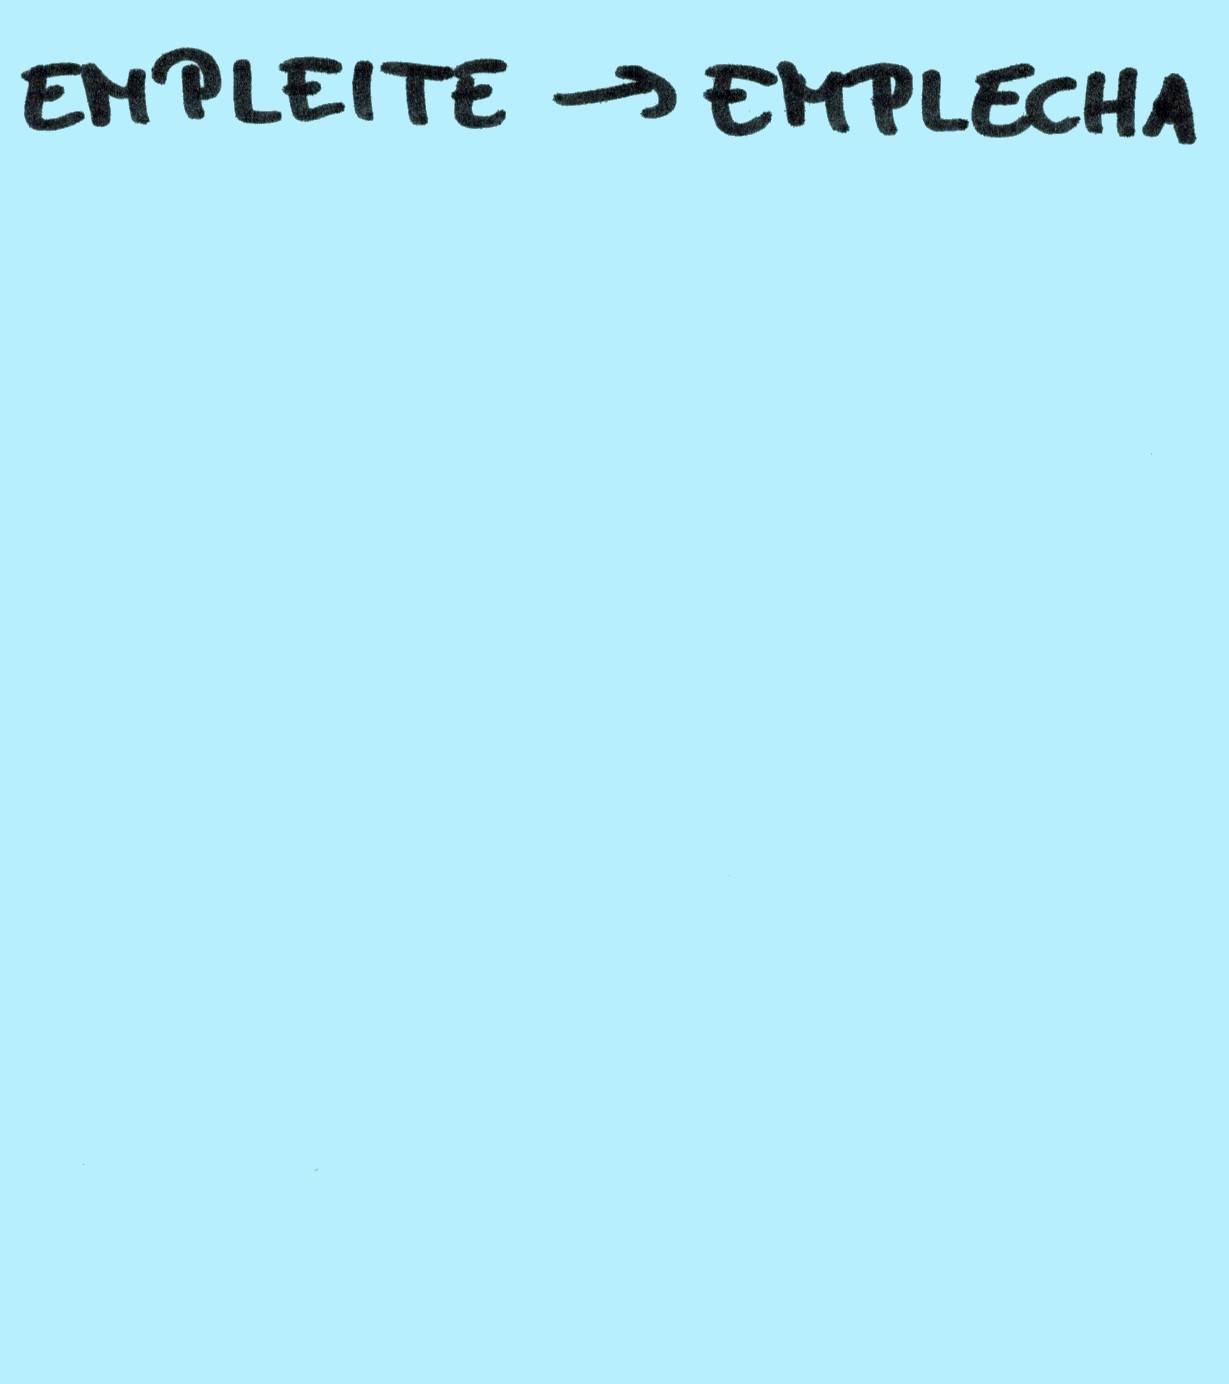 EMPLEITE → EMPLECHA